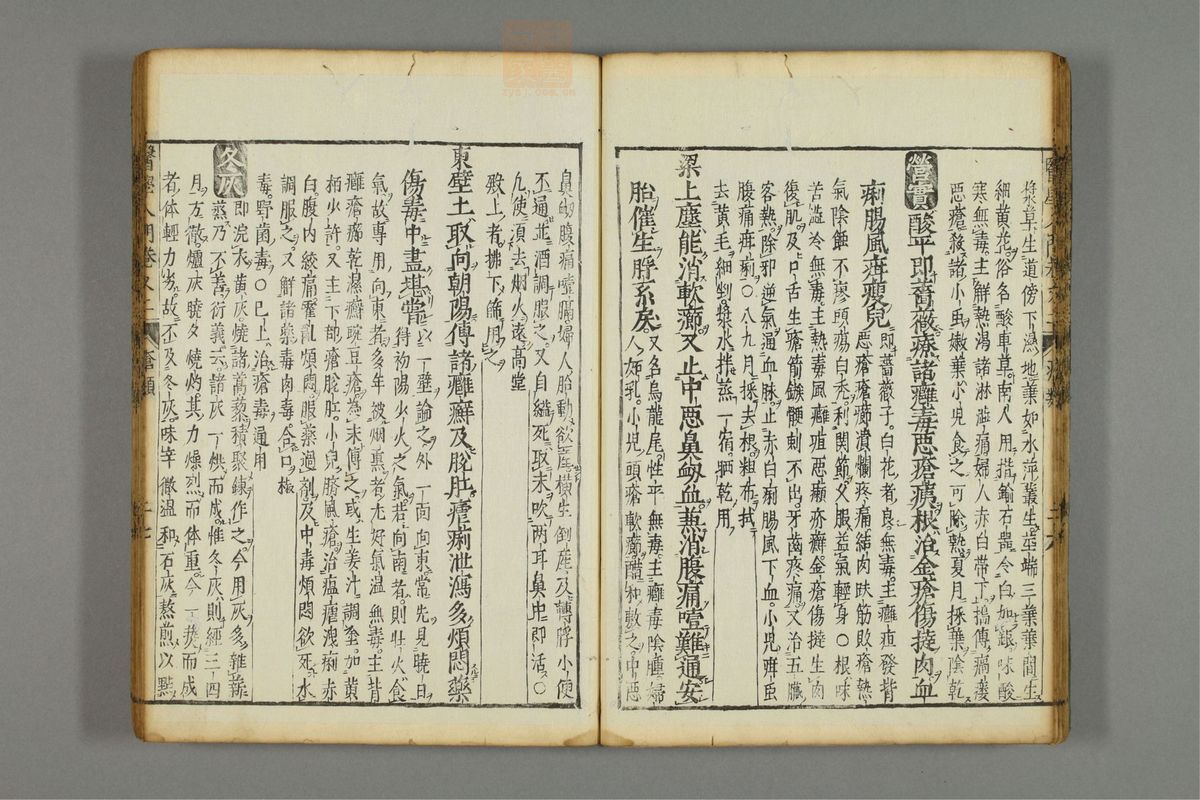 漿草生道傍下濕地葉如水萍叢生莖端三葉葉間生
細黃花俗名酸車草南人用揩鍮石器令白如銀味酸
寒無毒主解熱渴諸淋澁痛婦人赤白帶下搗傅瘑瘻
惡瘡殺諸小䖝嫩葉小兒食之可除熱夏月採葉陰乾
營實酸平即薔薇療諸癰毒惡瘡痍根治金瘡傷撻肉血
痢腸風疳瘦兒即薔薇子白花者良無毒主癰疽發背
惡瘡瘡癤潰爛疼痛結肉趺筋敗瘡熱
氣陰蝕不瘳頭瘍白禿利關節久服益氣輕身○根味
苦澁冷無毒主熱毒風癰疽惡癩疥癬金瘡傷撻生肉
復肌及口舌生瘡箭鏃骾刺不出牙齒疼痛又治五臟
客熱除邪逆氣通血脉止赤白痢腸風下血小兒疳䖝
腹痛疳痢○八九月採去根粗布拭
去黃毛細剉漿水拌蒸一宿晒乾用
梁上塵能消軟癤又止中惡鼻衂血蒸消腹痛噎難通安
胎催生脬系戾又名烏龍尾性平無毒主癰毒陰腫婦
人妬乳小兒頭瘡軟癤醋和敷之中惡
鼻衂腹痛噎膈婦人胎動欲產橫生倒產及轉脬小便
不通並酒調服之又自縊死取末吹兩耳鼻中即活○
凡使須去烟火遠高堂
殿上者拂下篩用之
東壁土取向朝陽傅諸癰癬及脫肛瘧痢泄瀉多煩悶藥
傷毒中盡堪嘗以一壁論之外一面向東常先見曉日
得初陽少火之氣若向南者則壯火食
氣故專用向東者多年被烟熏者尤好氣溫無毒主背
癰瘡癤乾濕癬豌豆瘡為末傅之或生姜汁調塗如黃
柄少許又主下部瘡脫肛小兒臍風瘡治瘟瘧洩痢赤
白腹內絞痛霍亂煩悶服藥過劑及中毒煩悶欲死水
調服之又解諸藥毒肉毒合口椒
毒野菌毒○已上治瘡毒通用
冬灰即浣衣黃灰燒諸蒿藜積聚鍊作之今用灰多雜薪
蒸乃不善衍義云諸灰一烘而成惟冬灰則經三四
月方徹爐灰曉夕燒灼其力燥烈而体重今一爇而成
者体輕力劣故不及冬灰味辛微溫和石灰熬煎以點